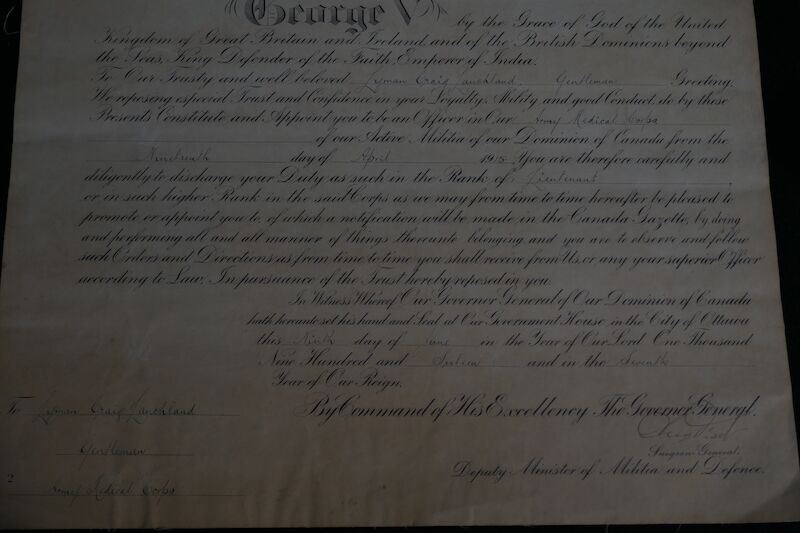 George V by the Grace of God of the United
Kingdom of Great Britain and Ireland, and of the British Dominions beyond
the Seas, King Defender of the Faith, Emperor of India.
To Our Trusty and well beloved Lyman Craig Lauchland, Gentleman Greeting.
We reposing especial Trust and Confidence in your Loyalty, Ability and good Conduct, do by these
Presents Constitute and Appoint you to be an Officer in Our Army Medical Corps
of our Active Militia of our Dominion of Canada from the
Nineteenth day of April 1915 You are therefore carefully and
diligently to discharge your Duty as such in the Rank of Lieutenant,
or in such higher Rank in the said Corps as we may from time to time hereafter be pleased to
promote or appoint you to, of which a notification will be made in the Canada Gazette, by doing
and performing all and all manner of things thereunto belonging and you are to observe and follow
such Orders and Directions as from time to time you shall receive from Us, or any your superior Officer
according to Law. In pursuance of the Trust hereby reposed in you.
In Witness Whereof Our Governor General of Our Dominion of Canada
hath hereunto set his hand and Seal at Our Government House in the City of Ottawa
this Ninth day of June in the Year of Our Lord One Thousand
Nine Hundred and Sixteen and in the Seventh
Year of Our Reign.
By Command of His Excellency The Governor General.
To Lyman Craig Lauchland
Gentleman
Surgeon General.
Deputy Minister of Militia and Defence.
2 Army Medical Corps